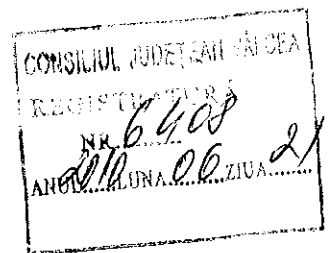 CONSILIUL JUDEŢEAN VÂLCEA
REGISTRATURĂ
NR. 6408
ANUL 2010 LUNA 06 ZIUA 21